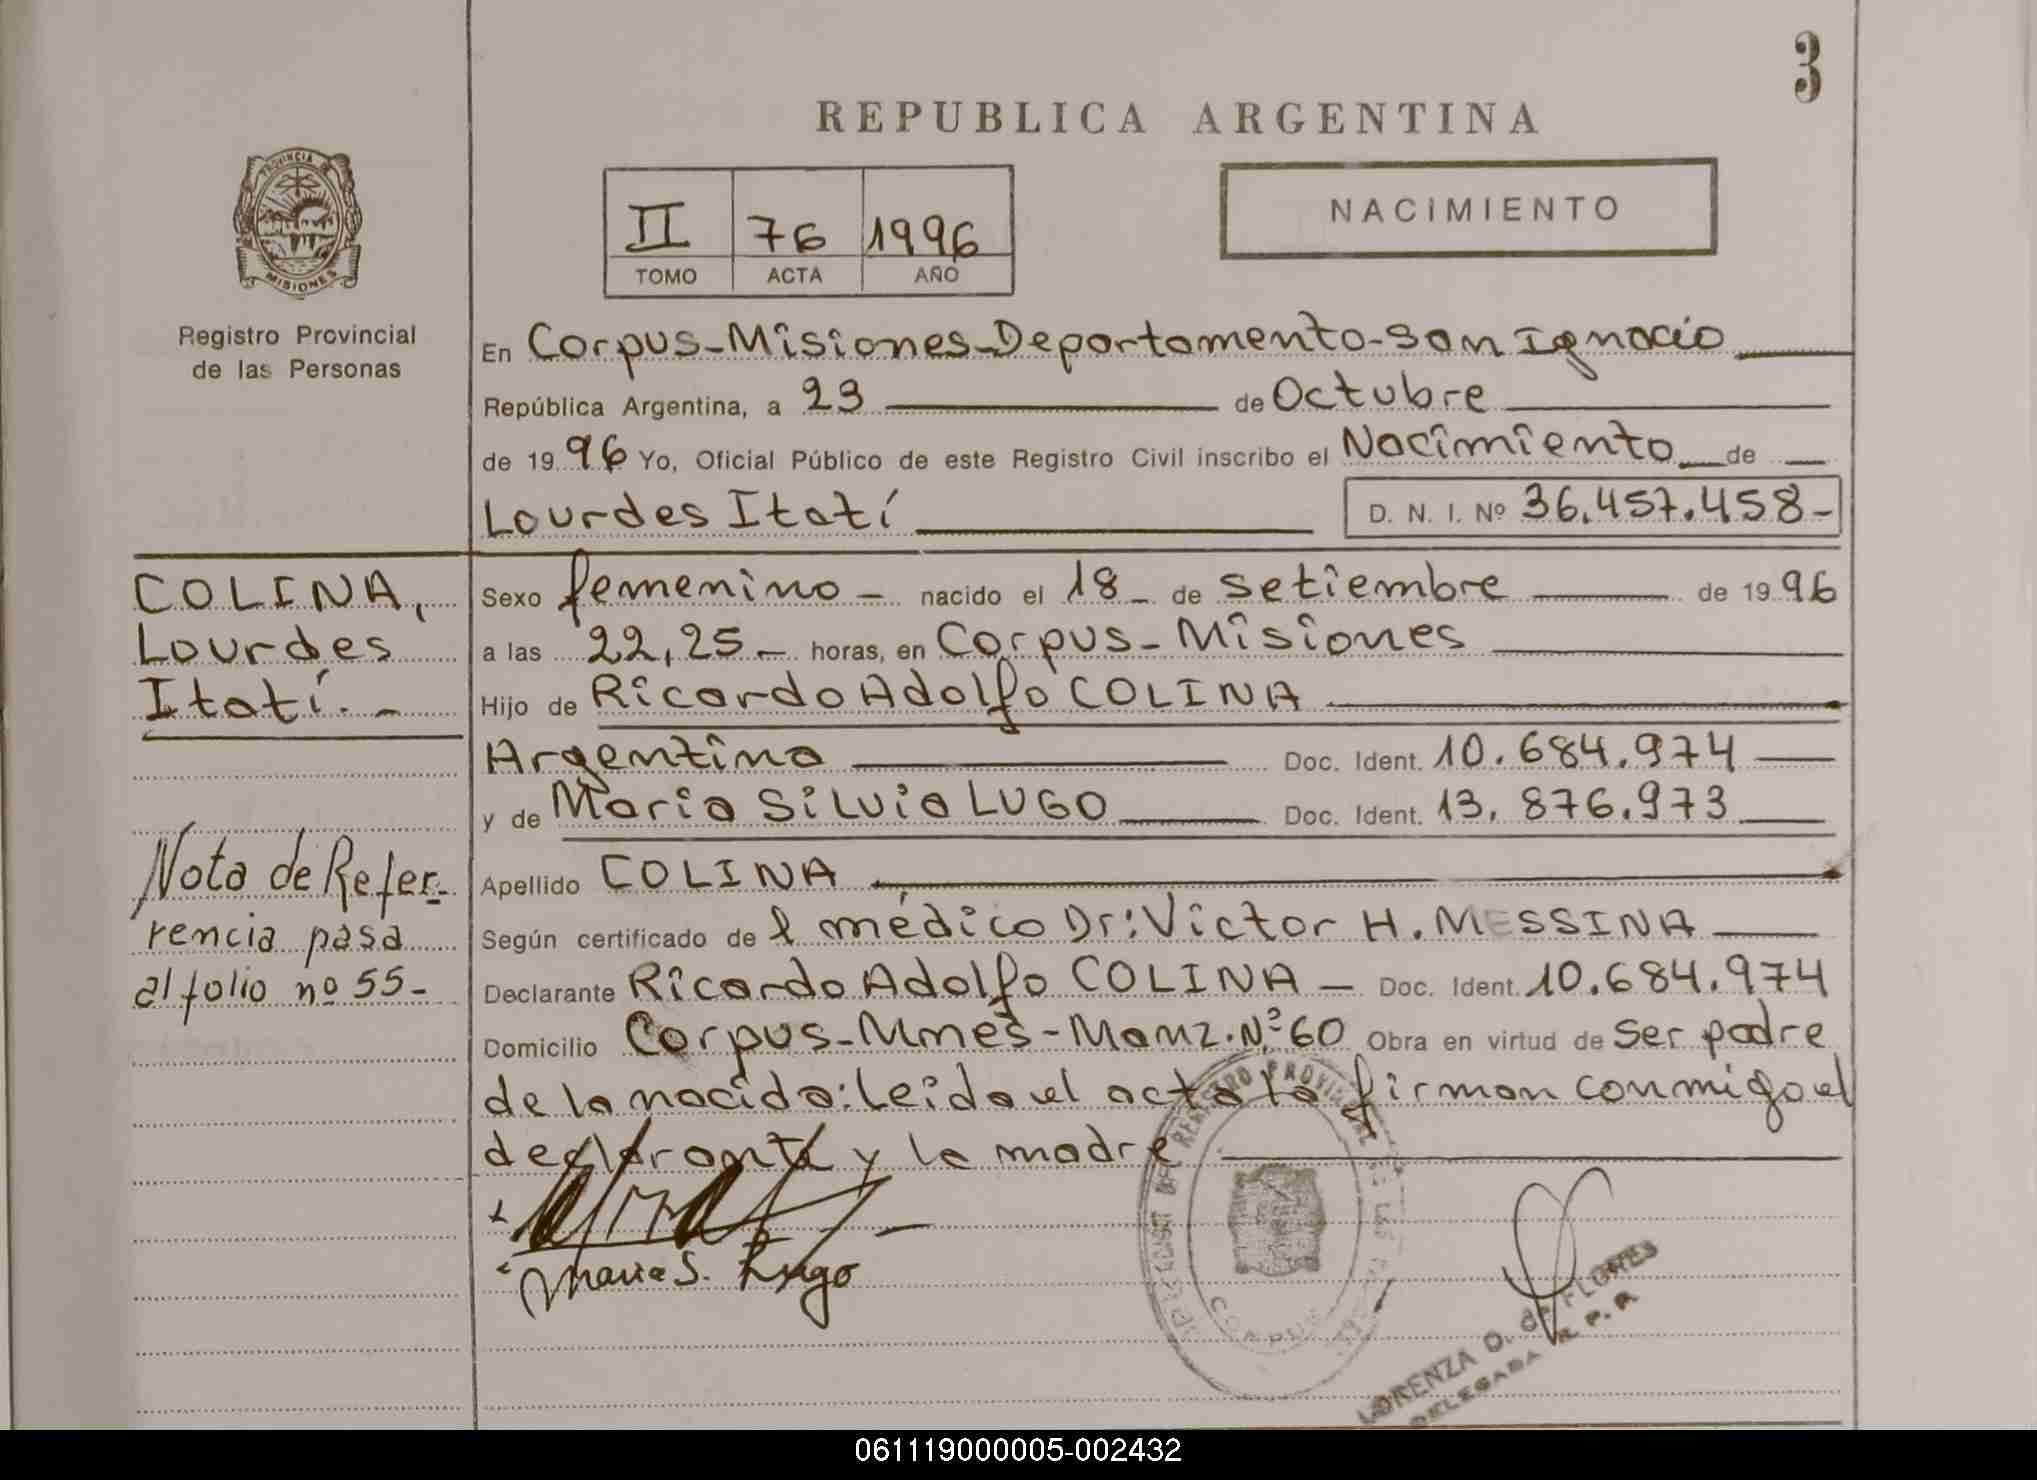 3
REPUBLICA ARGENTINA
PROVINCIA DE
MISIONES
Registro Provincial
de las Personas
II 76 1996
TOMO ACTA AÑO
NACIMIENTO
En Corpus-Misiones-Departamento-San Ignacio
República Argentina, a 23 de Octubre
de 19 96 Yo, Oficial Público de este Registro Civil inscribo el Nacimiento de
Lourdes Itatí D. N. I. Nº 36.457.458-
COLINA,
Lourdes
Itatí.-
Sexo femenino - nacido el 18 - de setiembre de 19 96
a las 22,25 - horas, en Corpus-Misiones
Hijo de Ricardo Adolfo COLINA
Argentina Doc. Ident. 10.684.974
y de Maria Silvia LUGO Doc. Ident. 13.876.973
Nota de Refer-
rencia pasa
al folio nº 55-
Apellido COLINA
Según certificado de l médico Dr: Victor H. MESSINA
Declarante Ricardo Adolfo COLINA - Doc. Ident. 10.684.974
Domicilio Corpus-Mnes-Manz.Nº 60 Obra en virtud de ser padre
de la nacida: Leida el acta la firman conmigo el
declarante y la madre
Maria S. Lugo
REGISTRO PROVINCIAL DE LAS
CORPUS
LORENZA D. de FLORES
DELEGADA R. P. P.
061119000005-002432